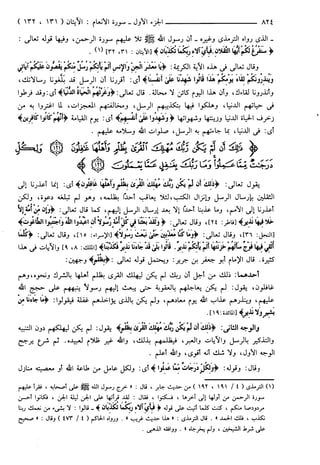 ٨٢٤ الجزء الأول - سورة الأنعام: الآيتان (١٣١ ، ١٣٢)
- الذي رواه الترمذي وغيره - أن رسول الله ﷺ تلا عليهم سورة الرحمن، وفيها قوله تعالى:
﴿سَنَفْرُغُ لَكُمْ أَيُّهَ الثَّقَلَانِ فَبِأَيِّ آلَاءِ رَبِّكُمَا تُكَذِّبَانِ﴾ (الآيتان: ٣١، ٣٢) (١).
وقال تعالى في هذه الآية الكريمة: ﴿يَا مَعْشَرَ الْجِنِّ وَالْإِنْسِ أَلَمْ يَأْتِكُمْ رُسُلٌ مِنْكُمْ يَقُصُّونَ عَلَيْكُمْ آيَاتِي
وَيُنْذِرُونَكُمْ لِقَاءَ يَوْمِكُمْ هَذَا قَالُوا شَهِدْنَا عَلَى أَنْفُسِنَا﴾ أي: أقررنا أن الرسل قد بلغونا رسالاتك،
وأنذرونا لقاءك، وأن هذا اليوم كائن لا محالة. قال تعالى: ﴿وَغَرَّتْهُمُ الْحَيَاةُ الدُّنْيَا﴾ أي: وقد فرطوا
في حياتهم الدنيا، وهلكوا فيها بتكذيبهم الرسل، ومخالفتهم المعجزات، لما اغتروا به من
زخرف الحياة الدنيا وزينتها وشهواتها ﴿وَشَهِدُوا عَلَى أَنْفُسِهِمْ﴾ أي: يوم القيامة ﴿أَنَّهُمْ كَانُوا كَافِرِينَ﴾
أي: في الدنيا، بما جاءتهم به الرسل، صلوات الله وسلامه عليهم.
﴿ذَلِكَ أَنْ لَمْ يَكُنْ رَبُّكَ مُهْلِكَ الْقُرَى بِظُلْمٍ وَأَهْلُهَا غَافِلُونَ وَلِكُلٍّ
دَرَجَاتٌ مِمَّا عَمِلُوا وَمَا رَبُّكَ بِغَافِلٍ عَمَّا يَعْمَلُونَ﴾
يقول تعالى: ﴿ذَلِكَ أَنْ لَمْ يَكُنْ رَبُّكَ مُهْلِكَ الْقُرَى بِظُلْمٍ وَأَهْلُهَا غَافِلُونَ﴾ أي: إنما أعذرنا إلى
الثقلين بإرسال الرسل وإنزال الكتب، لئلا يعاقب أحداً بظلمه، وهو لم تبلغه دعوة، ولكن
أعذرنا إلى الأمم، وما عذبنا أحداً إلا بعد إرسال الرسل إليهم، كما قال تعالى: ﴿وَإِنْ مِنْ أُمَّةٍ إِلَّا
خَلَا فِيهَا نَذِيرٌ﴾ (فاطر: ٢٤)، وقال تعالى: ﴿وَلَقَدْ بَعَثْنَا فِي كُلِّ أُمَّةٍ رَسُولًا أَنِ اعْبُدُوا اللَّهَ وَاجْتَنِبُوا الطَّاغُوتَ﴾
(النحل: ٣٦)، وقال تعالى: ﴿وَمَا كُنَّا مُعَذِّبِينَ حَتَّى نَبْعَثَ رَسُولًا﴾ (الإسراء: ١٥)، وقال تعالى: ﴿كُلَّمَا
أُلْقِيَ فِيهَا فَوْجٌ سَأَلَهُمْ خَزَنَتُهَا أَلَمْ يَأْتِكُمْ نَذِيرٌ. قَالُوا بَلَى قَدْ جَاءَنَا نَذِيرٌ فَكَذَّبْنَا﴾ (الملك: ٨، ٩) والآيات في هذا
كثيرة. قال الإمام أبو جعفر بن جرير: ويحتمل قوله تعالى ﴿بِظُلْمٍ﴾ وجهين:
أحدهما: ذلك من أجل أن ربك لم يكن ليهلك القرى بظلم أهلها بالشرك ونحوه، وهم
غافلون، يقول: لم يكن يعاجلهم بالعقوبة حتى يبعث إليهم رسولاً ينبههم على حجج الله
عليهم، وينذرهم عذاب الله يوم معادهم، ولم يكن بالذي يؤاخذهم غفلة فيقولوا: ﴿مَا جَاءَنَا مِنْ
بَشِيرٍ وَلَا نَذِيرٍ﴾ (المائدة: ١٩).
والوجه الثاني: ﴿ذَلِكَ أَنْ لَمْ يَكُنْ رَبُّكَ مُهْلِكَ الْقُرَى بِظُلْمٍ﴾ يقول: لم يكن ليهلكهم دون التنبيه
والتذكير بالرسل والآيات والعبر، فيظلمهم بذلك، والله غير ظلام لعبيده. ثم شرع يرجح
الوجه الأول، ولا شك أنه أقوى، والله أعلم.
قال: وقوله: ﴿وَلِكُلٍّ دَرَجَاتٌ مِمَّا عَمِلُوا﴾ أي: ولكل عامل من طاعة الله أو معصيته منازل
(١) الترمذي (٤ / ١٩١ ، ١٩٢) من حديث جابر، قال: خرج رسول الله ﷺ على أصحابه، فقرأ عليهم
سورة الرحمن من أولها إلى آخرها، فسكتوا، فقال: لقد قرأتها على الجن ليلة الجن، فكانوا أحسن
مردودا منكم، كنت كلما أتيت على قوله ﴿فَبِأَيِّ آلَاءِ رَبِّكُمَا تُكَذِّبَانِ﴾ - قالوا: لا بشيء من نعمك ربنا
نكذب، فلك الحمد. قال الترمذي: هذا حديث غريب. ورواه الحاكم (٤٧٣/٢) وقال: صحيح
على شرط الشيخين، ولم يخرجاه. ووافقه الذهبي.